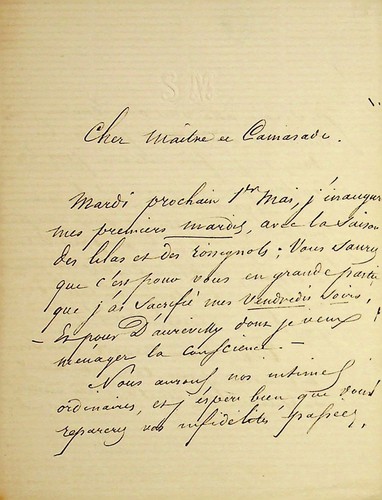 Cher Maître et Camarade.
Mardi prochain 1er Mai, j'inaugure
mes premiers mardis, avec la saison
des lilas et des rossignols ; Vous saurez
que c'est pour vous en grande partie
que j'ai sacrifié mes vendredis soirs,
— Et pour D'aurevilly dont je veux
ménager la conscience. —
Nous aurons nos intimes
ordinaires, et j'espère bien que vous
reparerez vos infidélités passées,